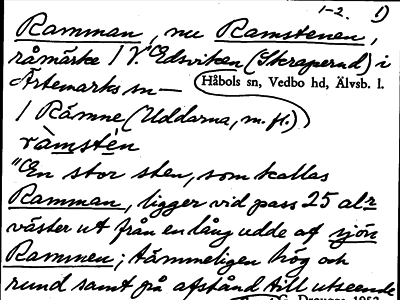 1-2. 1)
Ramman, nu Ramstenen,
råmärke / V. Edsviken (Skraperud) i
Ärtemarks sn — Håbols sn, Vedbo hd, Älvsb. l.
/ Rämne (Uddarna, m. fl.)
ràmsté̱n
"En stor sten, som kallas
Ramman, ligger vid pass 25 alr
väster ut från en lång udde af sjön
Rammen; tämmeligen hög och
rund samt på afstånd till utseende